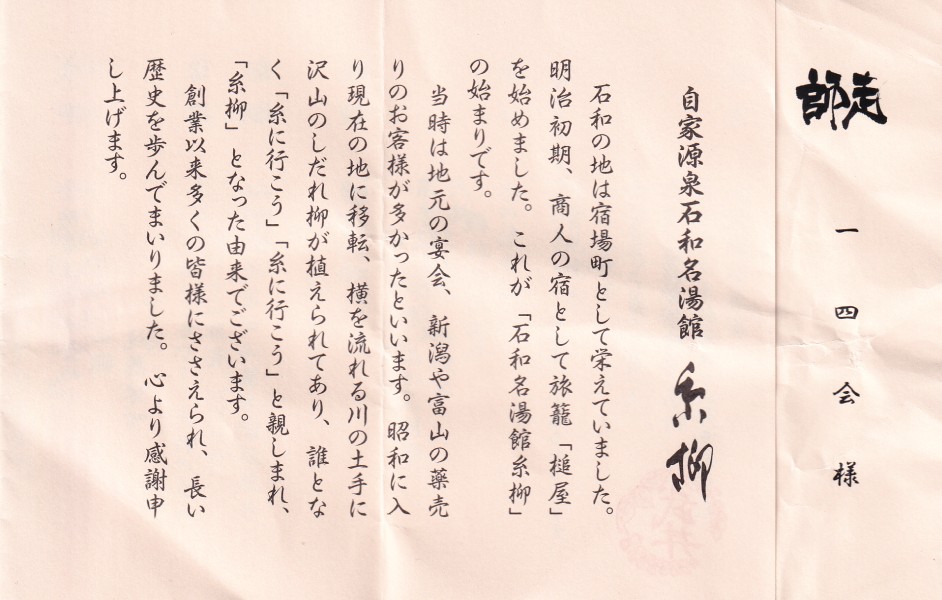 師走
一四会様
自家源泉石和名湯館 糸柳
石和の地は宿場町として栄えていました。
明治初期、商人の宿として旅籠「槌屋」
を始めました。これが「石和名湯館糸柳」
の始まりです。
当時は地元の宴会、新潟や富山の薬売
りのお客様が多かったといいます。昭和に入
り現在の地に移転、横を流れる川の土手に
沢山のしだれ柳が植えられてあり、誰とな
く「糸に行こう」「糸に行こう」と親しまれ、
「糸柳」となった由来でございます。
創業以来多くの皆様にささえられ、長い
歴史を歩んでまいりました。心より感謝申
し上げます。